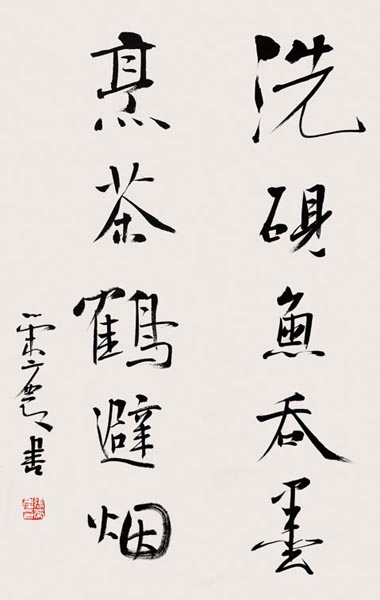 洗砚鱼吞墨
烹茶鹤避烟
书